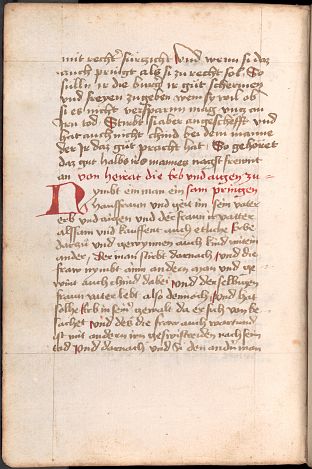 mit recht fürzicht Und wenn si daz
auch pringt als si zu recht sol So
sülln ir die burg ir gut schermen
und freyen zugeben wem sy wil ob
si es nicht verparnn mag untz an
irn tod Stirbt si aber an geschefft und
hat auch nicht chind bei dem manne
der ir daz gut pracht hat So gehöret
daz gut halbs irs mannes nagst frewnt
an von heirat die erb und aigen zu
Nymbt ein man ein sam pringen
hausfraun und geit in sein vater
erb und aigen und der fraun ir vatter
alssam und kauffent auch etliche erbe
darzu und gewynnen auch kind mitein
ander Der man stirbt darnach Und die
fraw nymbt ainn andern man und ge
wint auch chind dabei Und der selbigen
fraun vater lebt also dennoch Und hat
solhe erb in seinr gewalt da er sich von be
sachet Und des die fraw auch wartund
ist mit andern irn geswistreiden nach seim
tod Und darnach und die den andern man